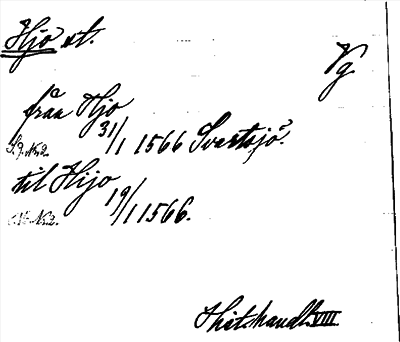 Hjo st.
Vg
fråa Hjo
31/1 1566 Svartsjö?
S. 9. N:o 2.
til Hijo
19/1 1566.
N:o 2.
Hist. handl. VIII